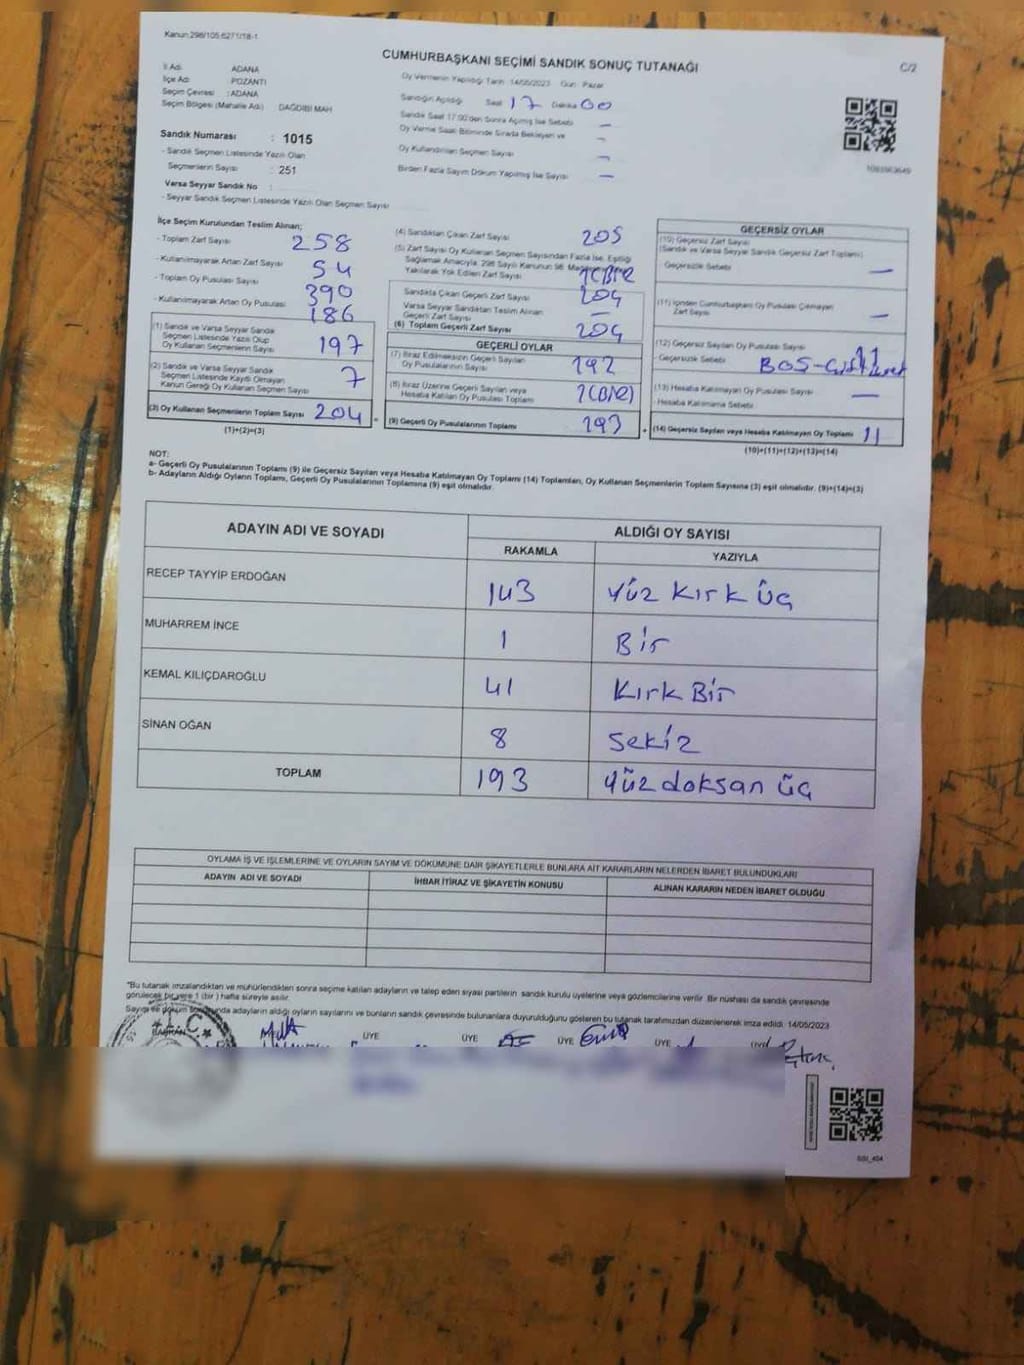 Kanun:298/105,6271/18-1
CUMHURBAŞKANI SEÇİMİ SANDIK SONUÇ TUTANAĞI
C/2
İl Adı : ADANA
İlçe Adı : POZANTI
Seçim Çevresi : ADANA
Seçim Bölgesi (Mahalle Adı) : DAĞDİBİ MAH
Sandık Numarası : 1015
- Sandık Seçmen Listesinde Yazılı Olan
Seçmenlerin Sayısı : 251
Varsa Seyyar Sandık No :
- Seyyar Sandık Seçmen Listesinde Yazılı Olan Seçmen Sayısı
Oy Vermenin Yapıldığı Tarih: 14/05/2023 Gün: Pazar
Sandığın Açıldığı Saat 17 Dakika 00
Sandık Saat 17:00'den Sonra Açılmış İse Sebebi —
Oy Verme Saati Bitiminde Sırada Bekleyen ve —
Oy Kullandırılan Seçmen Sayısı —
Birden Fazla Sayım Döküm Yapılmış İse Sayısı —
İlçe Seçim Kurulundan Teslim Alınan;
- Toplam Zarf Sayısı 258
- Kullanılmayarak Artan Zarf Sayısı 54
- Toplam Oy Pusulası Sayısı 390
- Kullanılmayarak Artan Oy Pusulası 186
(1) Sandık ve Varsa Seyyar Sandık
Seçmen Listesinde Yazılı Olup
Oy Kullanan Seçmenlerin Sayısı 197
(2) Sandık ve Varsa Seyyar Sandık
Seçmen Listesinde Kayıtlı Olmayan
Kanun Gereği Oy Kullanan Seçmen Sayısı 7
(3) Oy Kullanan Seçmenlerin Toplam Sayısı 204
(1)+(2)=(3)
(4) Sandıktan Çıkan Zarf Sayısı 205
(5) Zarf Sayısı Oy Kullanan Seçmen Sayısından Fazla İse, Eşitliği
Sağlamak Amacıyla, 298 Sayılı Kanunun 98.
Yakılarak Yok Edilen Zarf Sayısı 1(Bir)
Sandıkta Çıkan Geçerli Zarf Sayısı 204
Varsa Seyyar Sandıktan Teslim Alınan
Geçerli Zarf Sayısı —
(6) Toplam Geçerli Zarf Sayısı 204
GEÇERLİ OYLAR
(7) İtiraz Edilmeksizin Geçerli Sayılan
Oy Pusulalarının Sayısı 192
(8) İtiraz Üzerine Geçerli Sayılan veya
Hesaba Katılan Oy Pusulası Toplamı 1(BİR)
= (9) Geçerli Oy Pusulalarının Toplamı 193
GEÇERSİZ OYLAR
(10) Geçersiz Zarf Sayısı
(Sandık ve Varsa Seyyar Sandık Geçersiz Zarf Toplamı)
Geçersizlik Sebebi —
(11) İçinden Cumhurbaşkanı Oy Pusulası Çıkmayan
Zarf Sayısı —
(12) Geçersiz Sayılan Oy Pusulası Sayısı 11
- Geçersizlik Sebebi BOŞ-
(13) Hesaba Katılmayan Oy Pusulası Sayısı —
- Hesaba Katılmama Sebebi
+ (14) Geçersiz Sayılan veya Hesaba Katılmayan Oy Toplamı 11
(10)+(11)+(12)+(13)=(14)
NOT:
a- Geçerli Oy Pusulalarının Toplamı (9) ile Geçersiz Sayılan veya Hesaba Katılmayan Oy Toplamı (14) Toplamları, Oy Kullanan Seçmenlerin Toplam Sayısına (3) eşit olmalıdır. (9)+(14)=(3)
b- Adayların Aldığı Oyların Toplamı, Geçerli Oy Pusulalarının Toplamına (9) eşit olmalıdır.
ADAYIN ADI VE SOYADI ALDIĞI OY SAYISI
RAKAMLA YAZIYLA
RECEP TAYYİP ERDOĞAN 143 Yüz Kırk üç
MUHARREM İNCE 1 Bir
KEMAL KILIÇDAROĞLU 41 Kırk Bir
SİNAN OĞAN 8 Sekiz
TOPLAM 193 Yüz doksan üç
OYLAMA İŞ VE İŞLEMLERİNE VE OYLARIN SAYIM VE DÖKÜMÜNE DAİR ŞİKAYETLERLE BUNLARA AİT KARARLARIN NELERDEN İBARET BULUNDUKLARI
ADAYIN ADI VE SOYADI İHBAR İTİRAZ VE ŞİKAYETİN KONUSU ALINAN KARARIN NEDEN İBARET OLDUĞU
"Bu tutanak imzalandıktan ve mühürlendikten sonra seçime katılan adayların ve talep eden siyasi partilerin sandık kurulu üyelerine veya gözlemcilerine verilir. Bir nüshası da sandık çevresinde
görülecek bir yere 1 (bir) hafta süreyle asılır.
Sayım ve döküm sonucunda adayların aldığı oyların sayılarını ve bunların sandık çevresinde bulunanlara duyurulduğunu gösteren bu tutanak tarafımızdan düzenlenerek imza edildi. 14/05/2023
BAŞKAN ÜYE ÜYE ÜYE ÜYE
T.C.
SSI_404